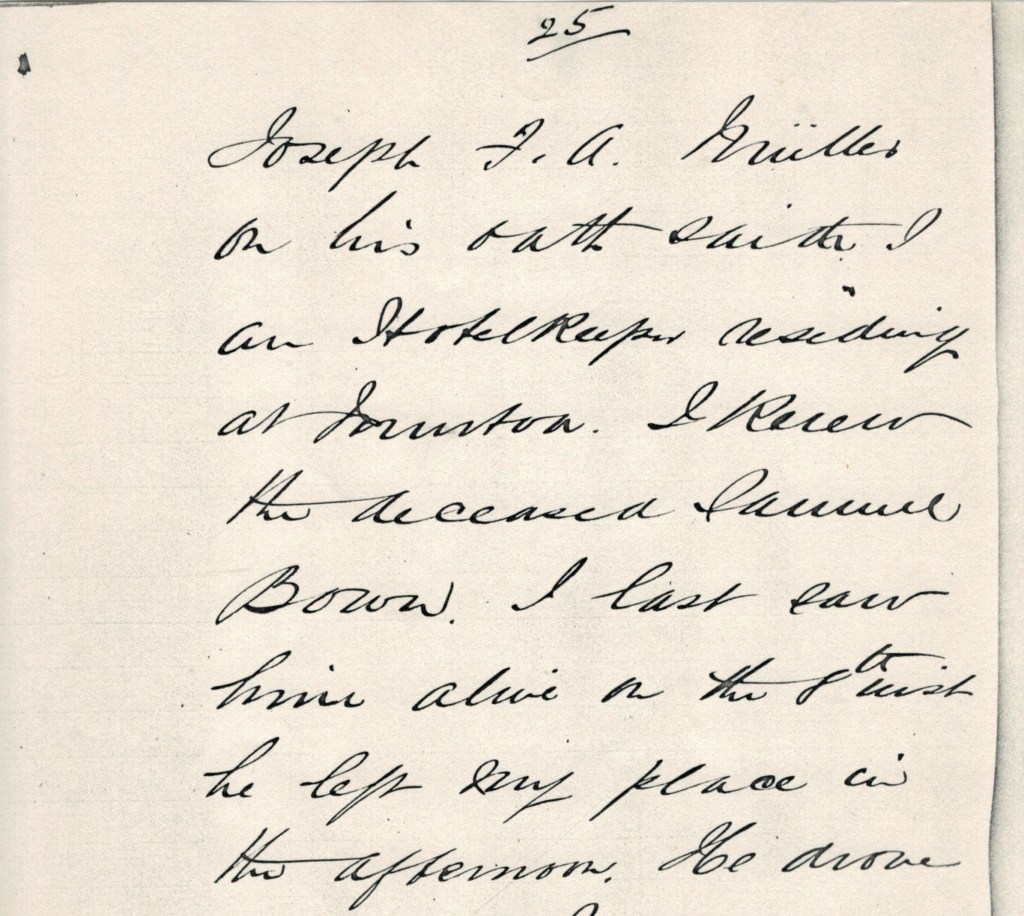 25
Joseph F. A. Müller
on his oath saith I
an Hotelkeeper residing
at I knew
the deceased Samuel
Bown. I last saw
him alive on the 8th inst
he left my place in
the afternoon. He drove